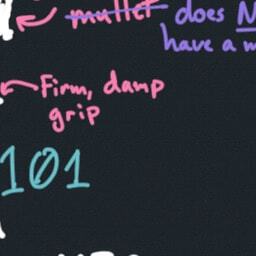 mullet does
have a
Firm, damp
grip
101